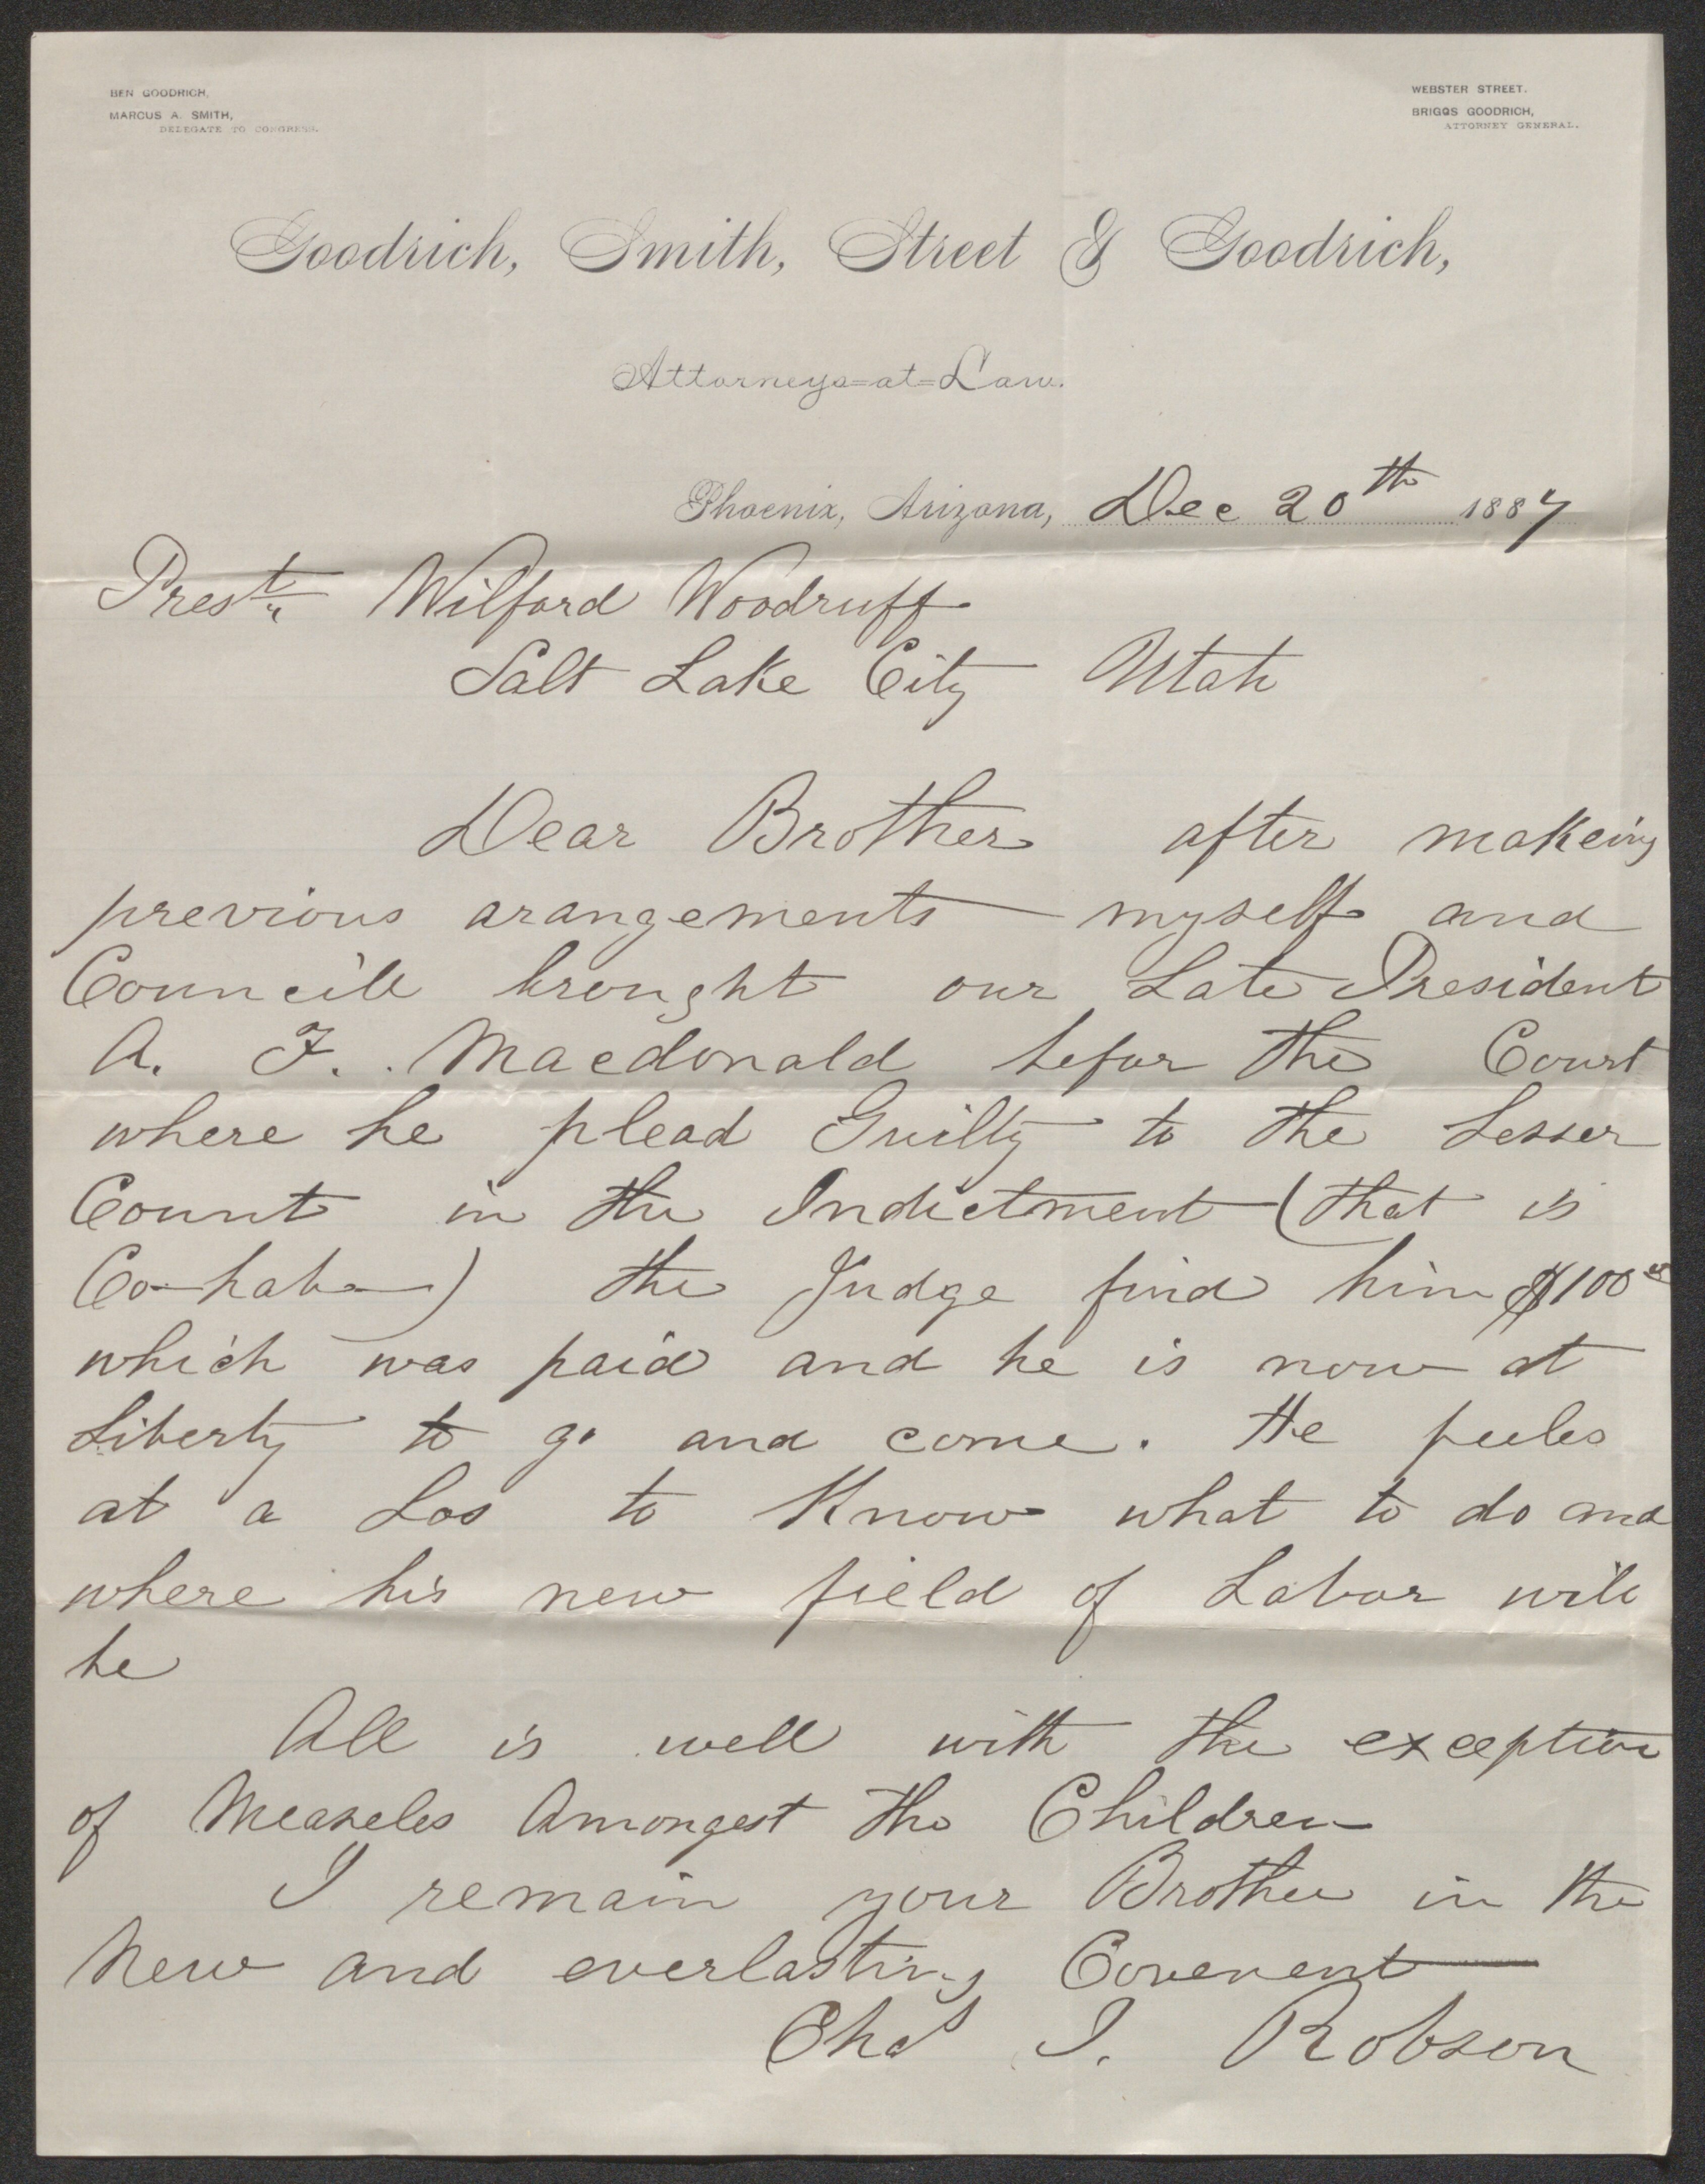 BEN GOODRICH,
MARCUS A. SMITH,
DELEGATE TO CONGRESS.
WEBSTER STREET.
BRIGGS GOODRICH,
ATTORNEY GENERAL.
Goodrich, Smith, Street & Goodrich,
Attorneys-at-Law.
Phoenix, Arizona, Dec 20th 1887
Prest. Wilford Woodruff
Salt Lake City Utah
Dear Brother after makeing
previous arangements myself and
Councill brought our Late President
A. F. Macdonald befor the Court
where he plead Guilty to the Lesser
Count in the Indictment (that is
Co-hab) the Judge find him $100
which was paid and he is now at
Liberty to go and come. He feeles
at a Los to Know what to do and
where his new field of Labor will
be
All is well with the exception
of Measeles Amongest the Children
I remain your Brother in the
New and everlasting Covenent
Chas I. Robson